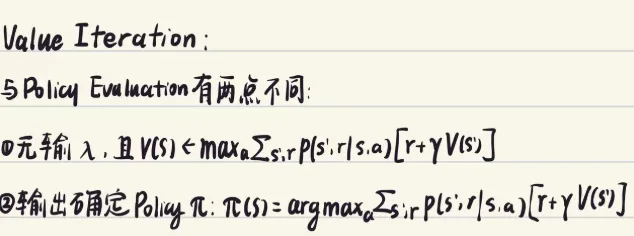 Value Iteration:
与Policy Evaluation有两点不同:
①无输入,且V(s)←maxₐ∑s',r p(s',r|s,a)[r+γV(s')]
②输出确定Policy π: π(s)=argmaxₐ∑s',r p(s',r|s,a)[r+γV(s')]